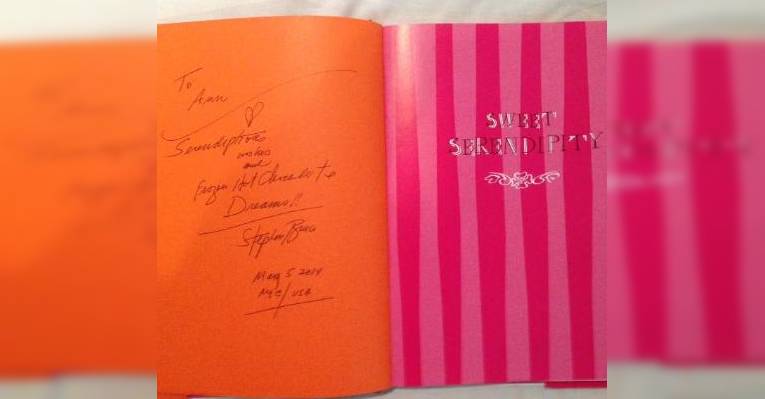 To
Ann
Serendipitous
wishes
and
Frozen Hot Chocolate
Dreams!!
Stephen Bruce
May 5 2014
NYC/USA
SWEET
SERENDIPITY